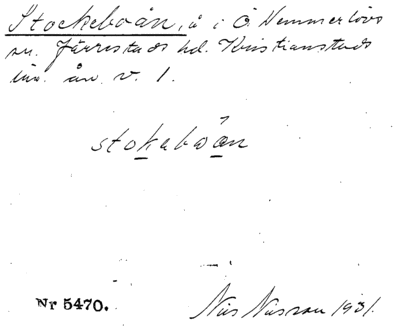 Stockeboån, å i Ö Nemmerlövs
sn. Järrestads hd. Kristianstads
län. ån. v. 1.
stokaboån
Nr 5470.
Nils Nilsson 1931.